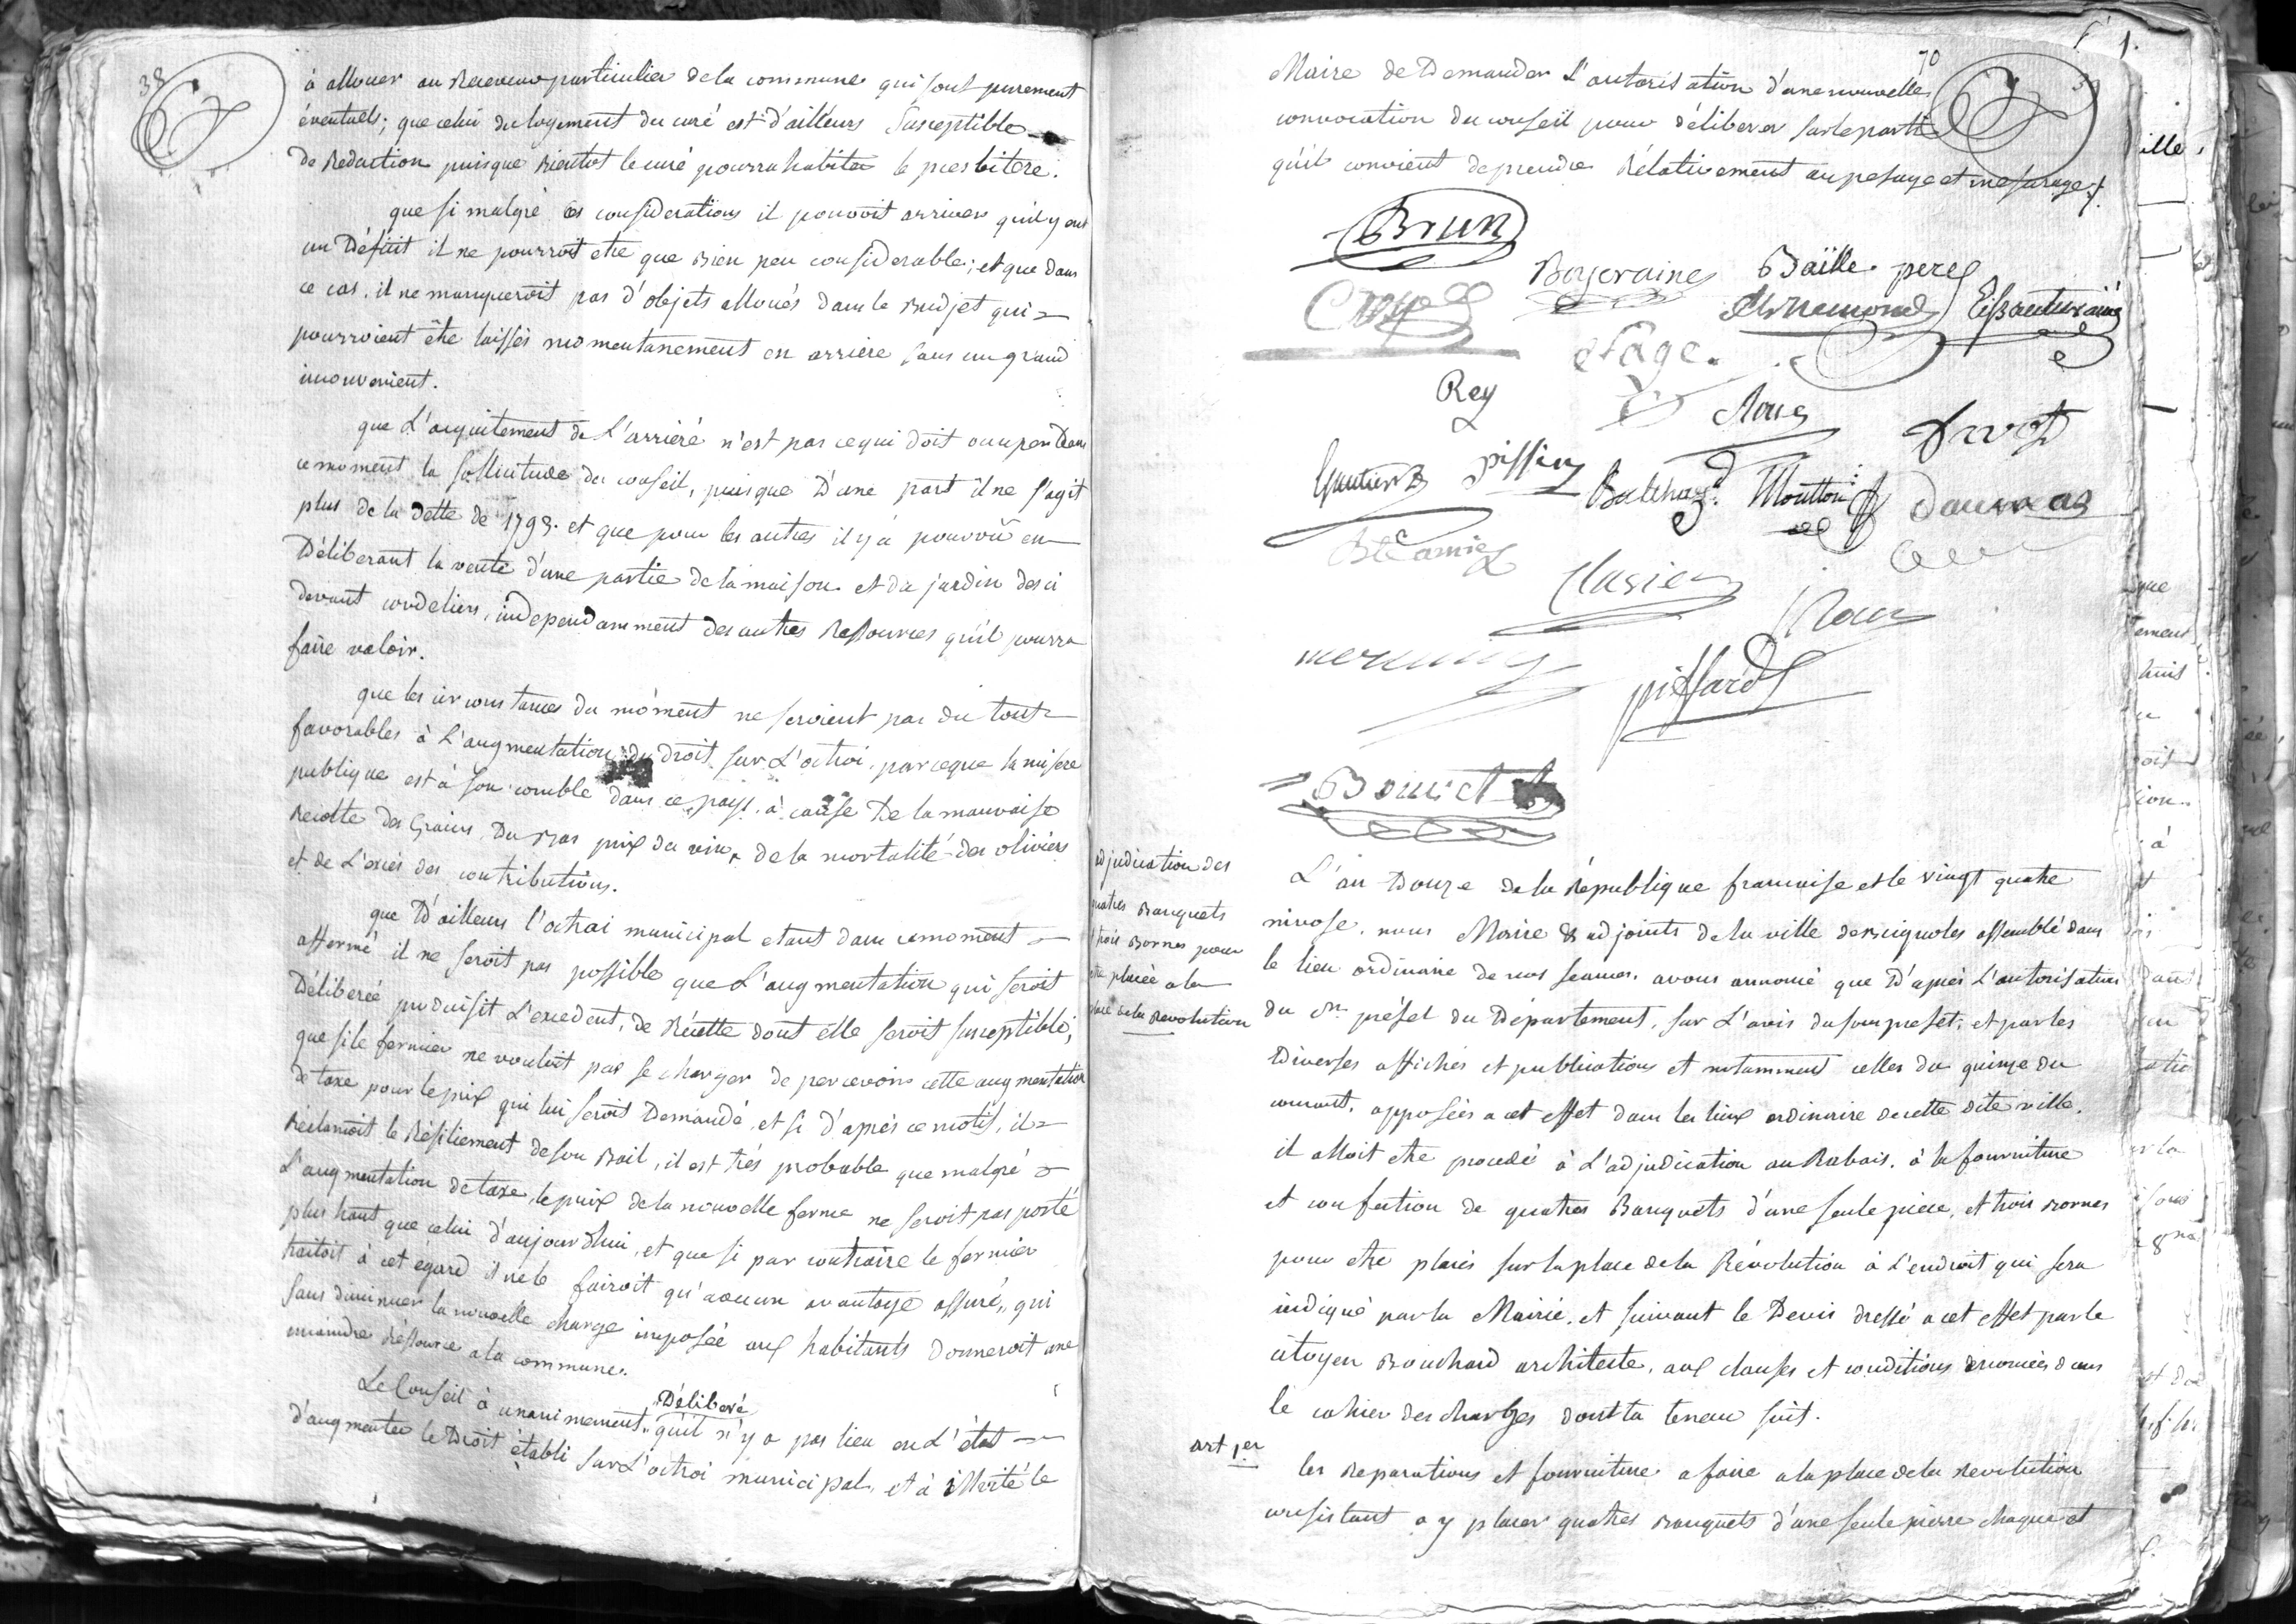 38
à allouer au Receveur particulier de la commune qui sont purement
éventuels; que celui du logement du curé est d'ailleurs susceptible
de Réduction puisque Bientot le curé pourra habiter le presbitere.
que si malgré ces considerations il pouvoit arriver qu'il y eut
un Déficit il ne pourroit etre que Bien peu considerable; et que dans
ce cas, il ne manqueroit pas d'objets alloués dans le Budjet qui
pourroient être laissés momentanement en arriere sans un grand
inconvenient.
que L'acquitement de L'arriéré n'est pas ce qui doit occuper Dans
ce moment la sollicitude du conseil, puisque D'une part il ne s'agit
plus de la dette de 1793. et que pour les autres il y a pourvu en
Déliberant la vente d'une partie de la maison et du jardin des ci
devant cordeliers, independamment des autres Ressources qu'il pourra
faire valoir.
que les circonstances du moment ne seroient pas du tout
favorables à L'augmentation du droit sur L'octroi, parceque la misere
publique est à son comble dans ce pays, à cause De la mauvaise
Recolte des Grains, Du Bas prix du vin, de la mortalité des oliviers
et de L'exces des contributions.
que D'ailleurs l'octroi municipal etant dans ce moment
affermé il ne seroit pas possible que L'augmentation qui seroit
Déliberée produisit L'excedent, de Récette dont elle seroit susceptible;
que si le fermier ne vouloit pas se charger de percevoir cette augmentation
de taxe pour le prix qui lui seroit Demandé, et si d'après ce motif, il
Réclamoit le Résiliement de son Bail, il est très probable que malgré
L'augmentation de taxe, le prix de la nouvelle ferme ne seroit pas porté
plus haut que celui d'aujourdhui, et que si par contraire le fermier
traitoit à cet égard il ne le fairoit qu'a aucun avantage assuré, qui
sans diminuer la nouvelle charge imposée aux habitants donneroit une
moindre Ressource a la commune.
Le Conseil à unanimement Déliberé qu'il n'y a pas lieu en L'état
d'augmenter le Droit établi sur L'octroi municipal, et à invité le
70
Maire de Demander L'autorisation d'une nouvelle
convocation du conseil pour déliberer sur le parti
qu'il convient de prendre Rélativement au pesage et mesurage./.
Brun
Baille pere
Fage
Rey
Roux
Gautier
Balthazd. Moutton Daumas
Clasier
Roux
piffard
adjudication des
quatres Banquets
et trois Bornes pour
etre placée a la
place de la Revolution
L'an Douze de la République francaise et le vingt quatre
nivose, nous Maire & adjoints de la ville de Brignoles assemblé dans
le lieu ordinaire de nos seances, avons annoncé que D'après L'autorisation
du Cn. préfet du Département, sur L'avis du souspréfet; et par les
Diverses affiches et publications et notamment celles du quinze du
courant, apposées a cet effet dans les lieux ordinaire de cette dite ville,
il alloit etre procedé à L'adjudication au Rabais, à la fourniture
et confection de quatres Banquets d'une seule piece, et trois Bornes
pour etre placés sur la place de la Révolution à L'endroit qui sera
indiqué par la Mairie, et suivant le Devis dressé a cet effet par le
citoyen Bouchard architecte, aux clauses et conditions énoncées dans
le cahier des charges dont la teneur suit.
art 1.er
les Reparations et fourniture a faire a la place de la Revolution
consistant a y placer quatres Banquets d'une seule pierre chaque et